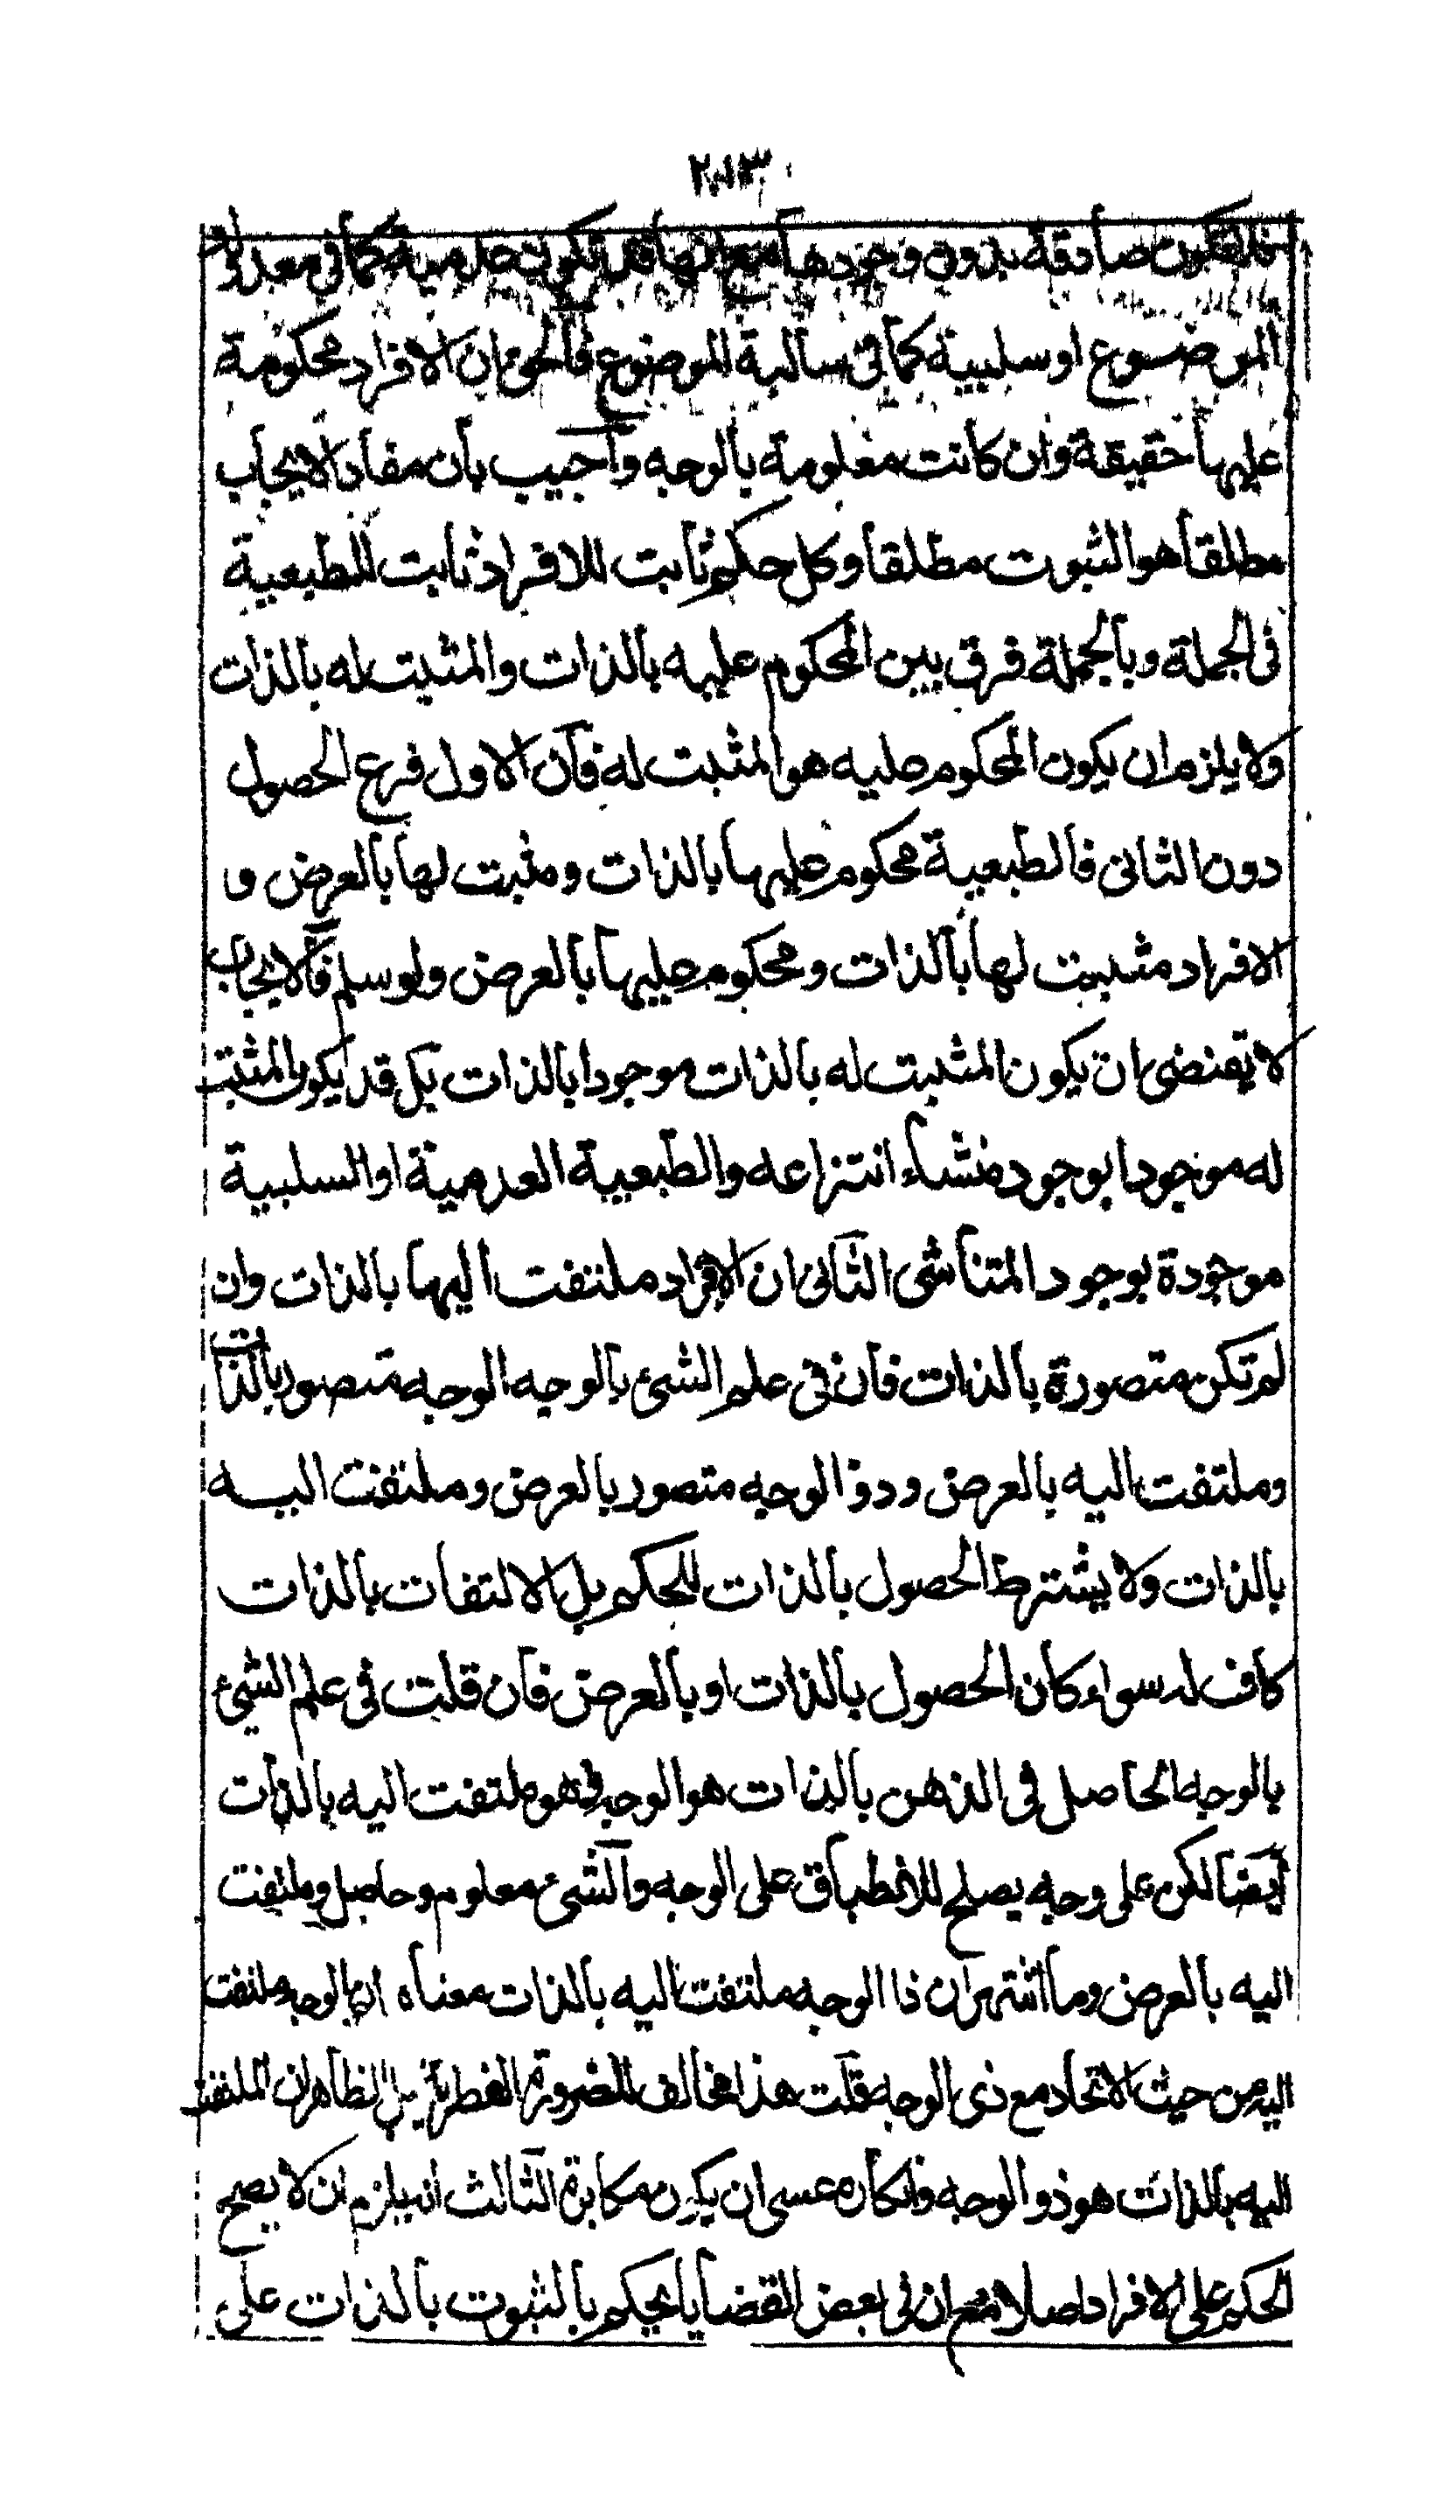 ٢٠١٣
فلا تكون صادقة بدون وجودها مع انها قد تكون عدمية كما في معدولة
الموضوع او سلبية كما في سالبة الموضوع فالحق ان الافراد محكومة
عليها حقيقة وان كانت معلومة بالوجه واجيب بان مفاد الايجاب
مطلقا هو الثبوت مطلقا وكل حكم ثابت للافراد ثابت للطبعية
في الجملة وبالجملة فرق بين المحكوم عليه بالذات والمثبت له بالذات
ولا يلزم ان يكون المحكوم عليه هو المثبت له فان الاول فرع الحصول
دون الثاني فالطبعية محكوم عليها بالذات ومثبت لها بالعرض و
الافراد مثبت لها بالذات ومحكوم عليها بالعرض ولو سلم فالايجاب
لا يقتضي ان يكون المثبت له بالذات موجودا بالذات بل قد يكون المثبت
له موجودا بوجود منشاء انتزاعه والطبعية العدمية او السلبية
موجودة بوجود المتناشي الثاني ان الافراد ملتفت اليها بالذات وان
لم تكن متصورة بالذات فان في علم الشئ بالوجه الوجه متصور بالذات
وملتفت اليه بالعرض وذو الوجه متصور بالعرض وملتفت اليه
بالذات ولا يشترط الحصول بالذات للحكم بل الالتفات بالذات
كاف له سواء كان الحصول بالذات او بالعرض فان قلت في علم الشئ
بالوجه الحاصل في الذهن بالذات هو الوجه فهو ملتفت اليه بالذات
ايضا لكن على وجه يصلح للانطباق على الوجه والشئ معلوم وحاصل وملتفت
اليه بالعرض وما اشتهر ان ذا الوجه ملتفت اليه بالذات معناه ان بالوجه ملتفت
اليه من حيث الاتحاد مع ذي الوجه قلت هذا مخالف للضرورة الفطرية بل الظاهر ان الملتفت
اليه بالذات هو ذو الوجه وانكاره عسى ان يكون مكابرة الثالث انه يلزم ان لا يصح
الحكم على الافراد اصلا مع ان في بعض القضايا يحكم بالثبوت بالذات على